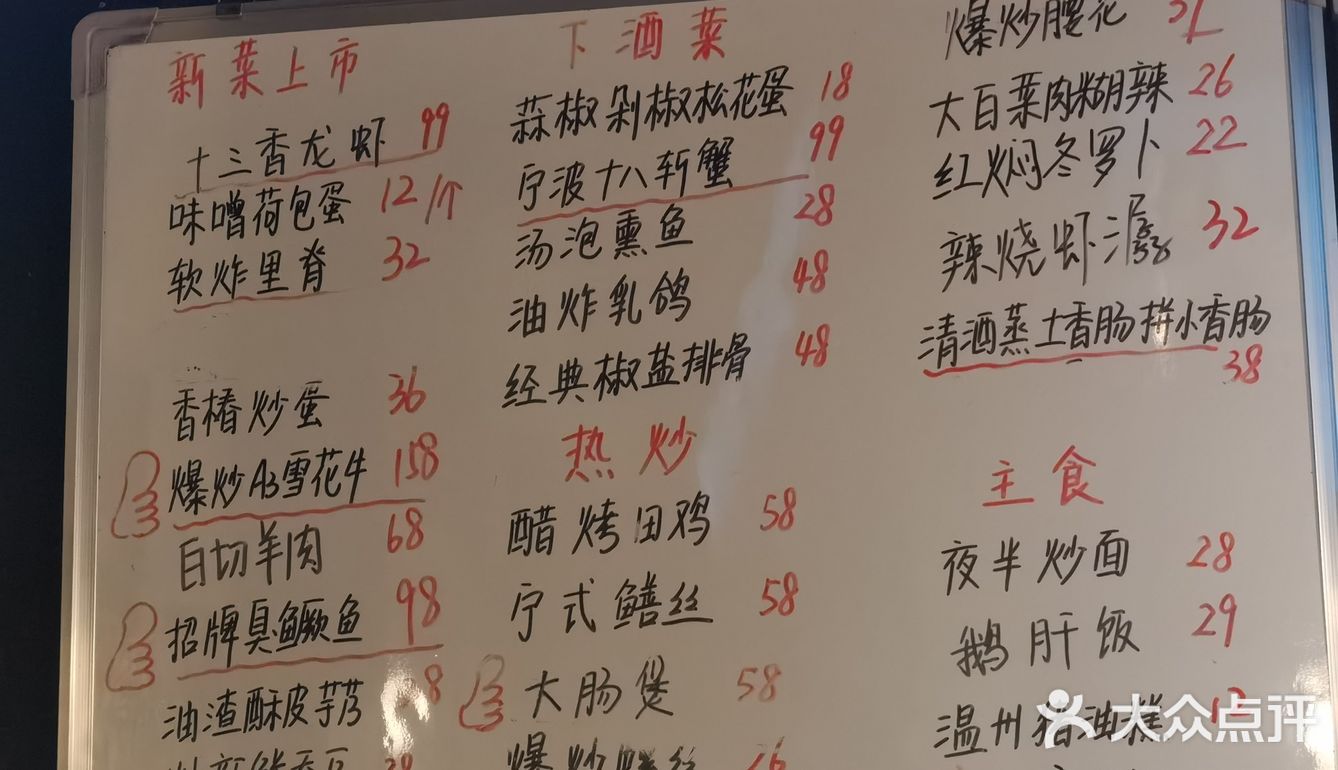 新菜上市
十三香龙虾 99
味噌荷包蛋 12/个
软炸里脊 32
香椿炒蛋 36
爆炒A3雪花牛 158
白切羊肉 68
招牌臭鳜鱼 98
油渣酥皮芋艿 8
下酒菜
蒜椒剁椒松花蛋 18
宁波十八斩蟹 99
汤泡熏鱼 28
油炸乳鸽 48
经典椒盐排骨 48
热炒
醋烤田鸡 58
宁式鳝丝 58
大肠煲 58
爆炒 丝 26
爆炒腰花
大白菜肉糊辣 26
红焖冬罗卜 22
辣烧虾潺 32
清酒蒸土香肠拼小香肠
38
主食
夜半炒面 28
鹅肝饭 29
温州猪油糕
大众点评